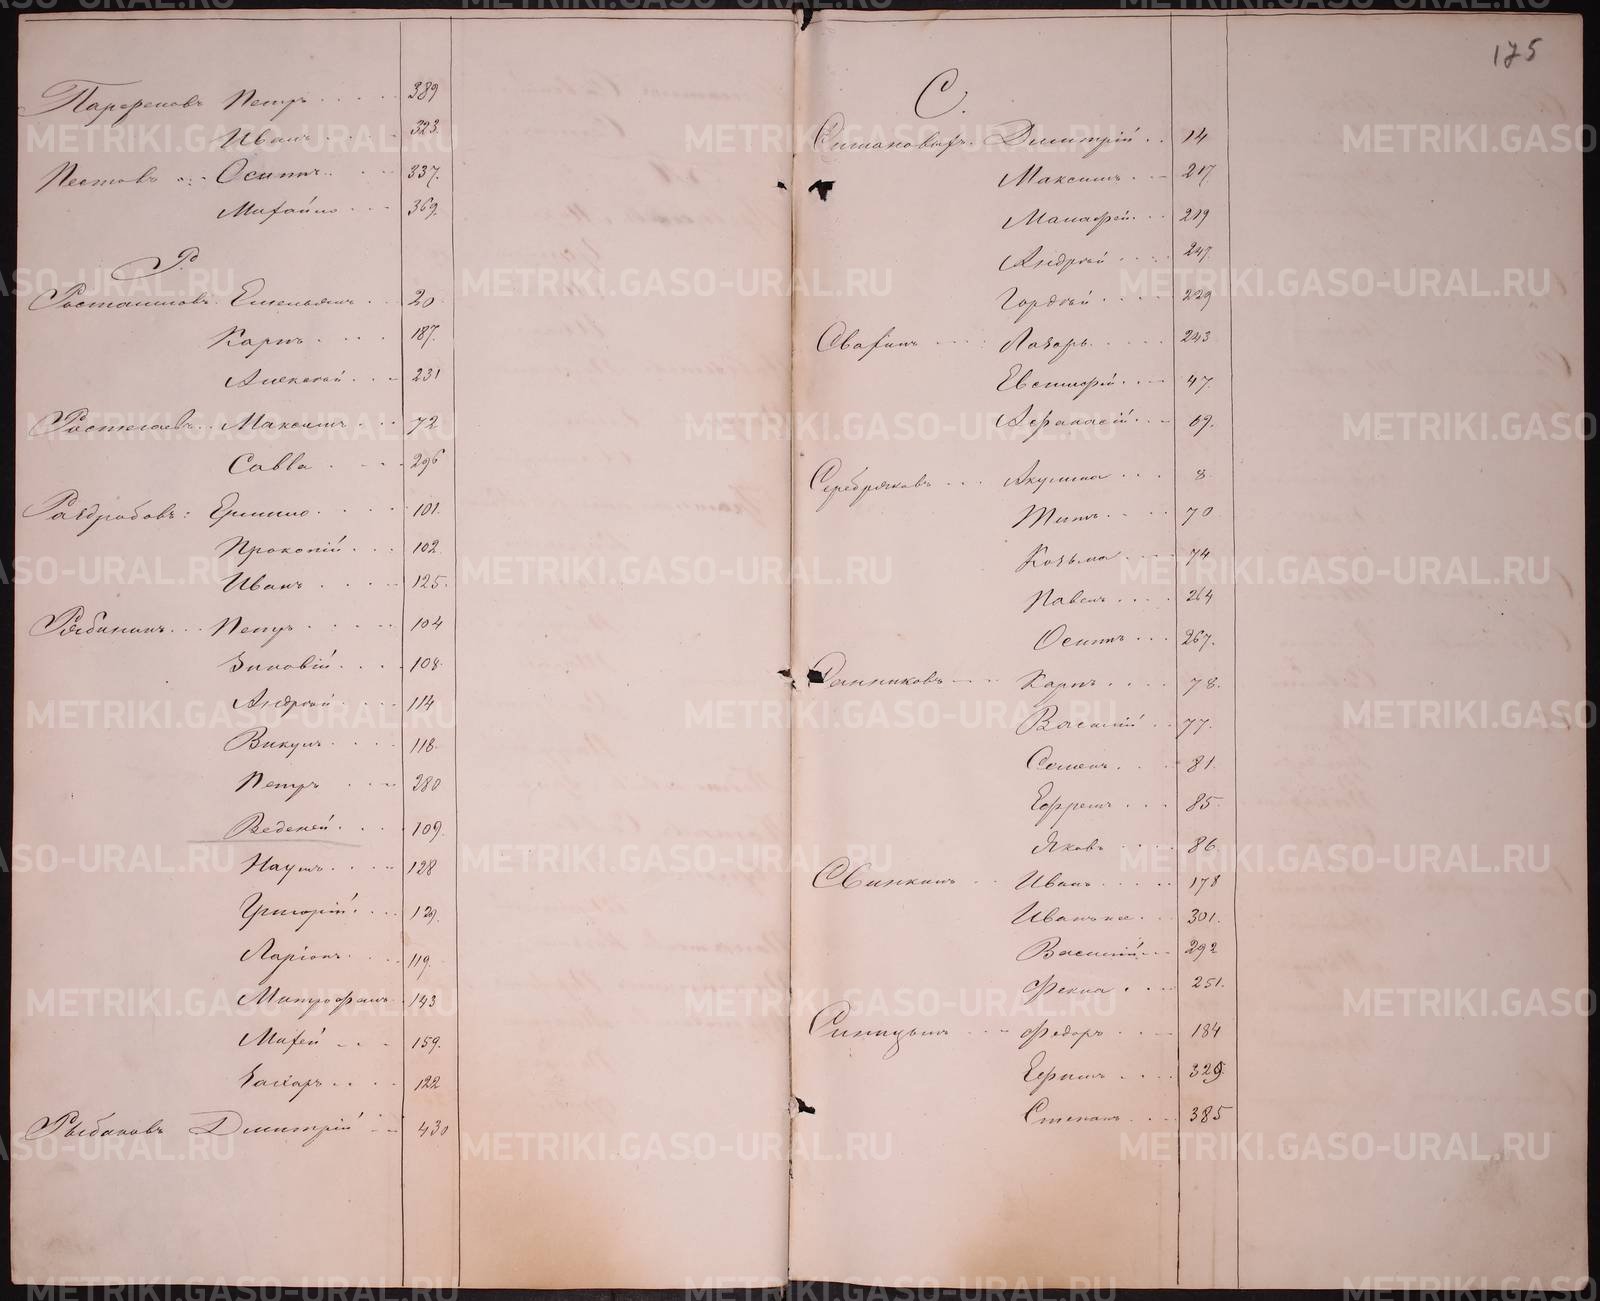 Парфеновъ Петръ 389
Иванъ 323.
Пестовъ Осипъ 337.
Михайло 369.
Р.
Емельянъ 20
Карпъ 187.
Алексѣй 231
Ростегаевъ Максимъ 72
Савва 296
Раздробовъ: Ермило 101.
Прокопій 102
Иванъ 125.
Рябининъ Петръ 104
Зиновій 108
Андрѣй 114
Викулъ 118.
Петръ 280
Веденей 109.
Наумъ 128
Григорій 129.
Ларіонъ 119.
Митрофанъ 143
Михей 159.
Захаръ 122
Рыбаковъ Дмитрій 430
175
С.
Дмитрій 14
Максимъ 217
Малафей 219
Андрѣй 247.
Гордѣй 229
Свахинъ Лазарь 243
Евстифѣй 47.
Афанасій 69.
Серебряковъ Акулина 8
Титъ 70
Козьма 74
Павелъ 264
Осипъ 267.
Санниковъ Карпъ 78.
Василій 77.
Семенъ 81.
Ефремъ 85.
Яковъ 86
Свинкинъ Иванъ 178
301.
Василій 292
Фекла 251.
Синицынъ Федоръ 184
Ефимъ 329.
Степанъ 385
METRIKI.GASO-URAL.RU